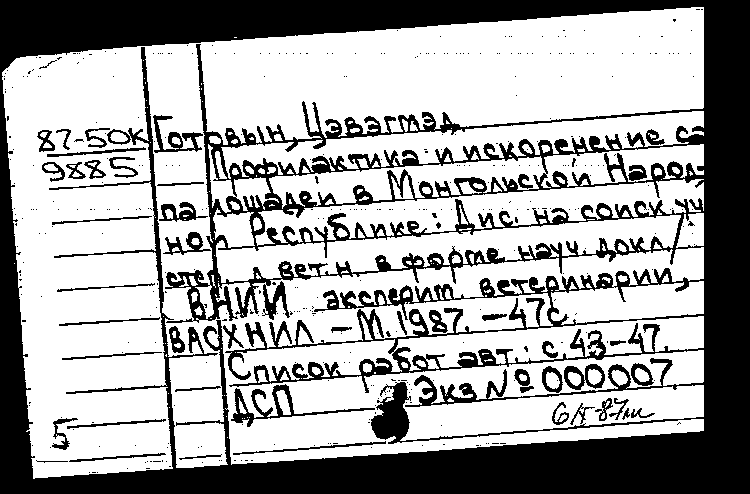 87-50К Готовын, Цэвэгмэд.
9885 Профилактика и искоренение са
па лошадей в Монгольской Народ-
ной Республике: Дис. на соиск. уч
степ. д. вет. н. в форме науч. докл. /
ВНИИ эксперим. ветеринарии,
ВАСХНИЛ. – М., 1987. – 47с.
Список работ авт.: с. 43-47.
ДСП Экз № 000007.
5